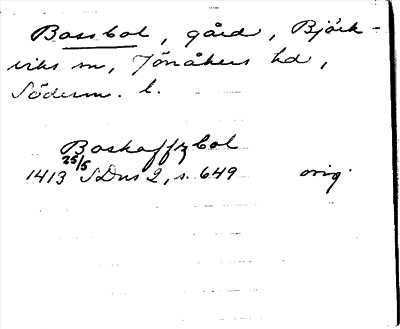 Bassbol, gård, Björk-
viks sn, Jönåkers hd,
Söderm. l.
Boskaffzbol
1413 25/5 SDns 2, s. 649 orig.